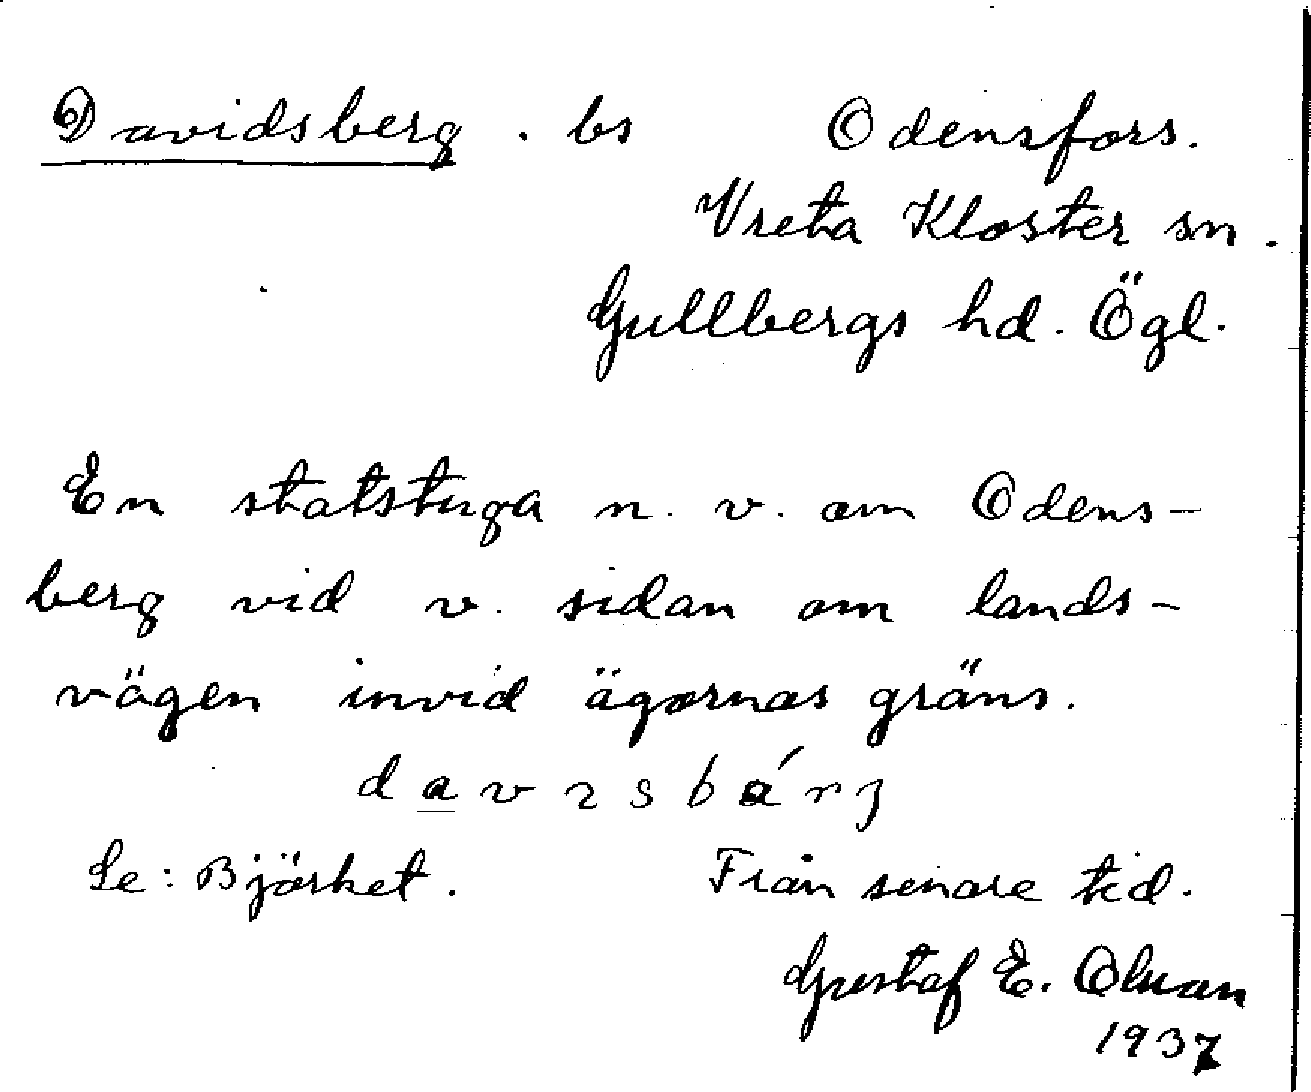 Davidsberg. bs Odensfors.
Vreta Kloster sn.
Gullbergs hd. Ögl.
En statstuga n. v. om Odens-
berg vid v. sidan om lands-
vägen invid ägornas gräns.
davɩsbárʒ
Se: Björket. Från senare tid.
Gustaf E. Olman
1937